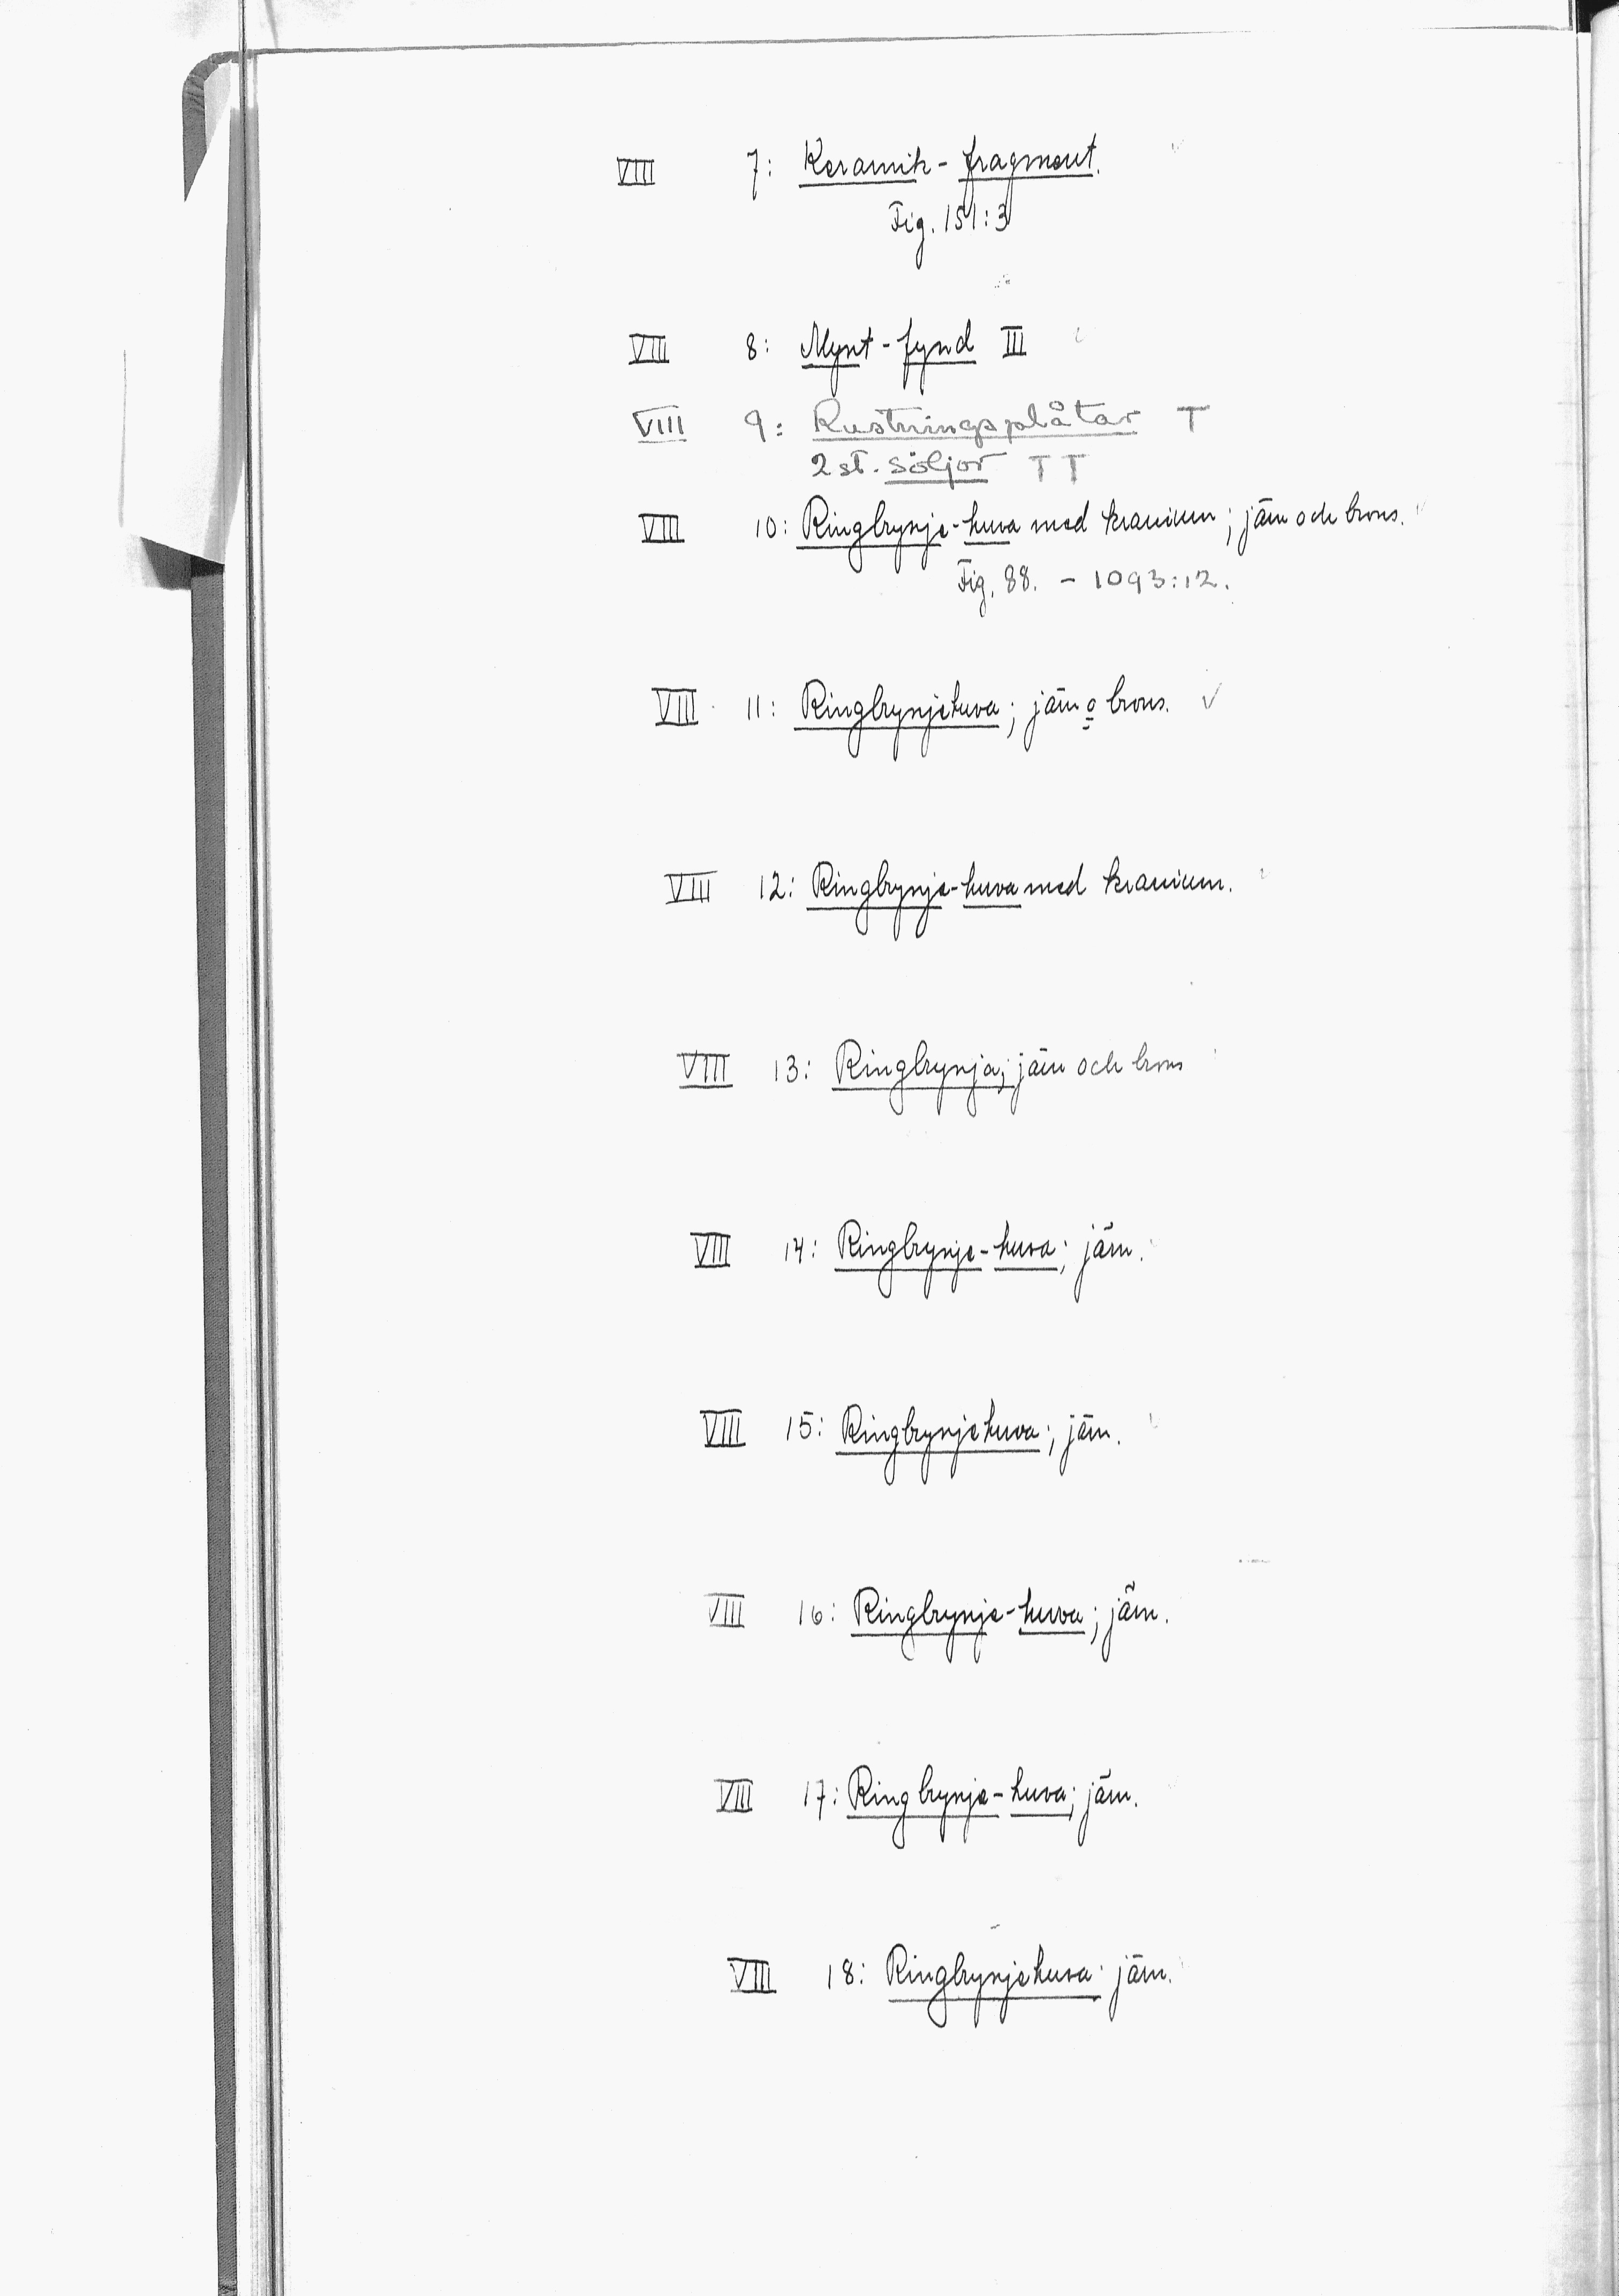 VIII 7: Keramik-fragment.
Fig. 151:3
VIII 8: Mynt-fynd III
VIII 9: Rustningsplåtar T
2 st. söljor T T
VIII 10: Ringbrynje-huva med kranium; järn och brons.
Fig. 88. - 1093:12.
VIII 11: Ringbrynjehuva; järn o brons. ✓
VIII 12: Ringbrynje-huva med kranium.
VIII 13: Ringbrynja; järn och brons
VIII 14: Ringbrynje-huva; järn.
VIII 15: Ringbrynjehuva; järn.
VIII 16: Ringbrynje-huva; järn.
VIII 17: Ringbrynje-huva; järn.
VIII 18: Ringbrynjehuva; järn.